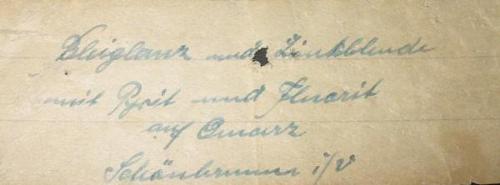 Bleiglanz und Zinkblende
mit Pyrit und Fluorit
auf Quarz
Schönbrunn i/V